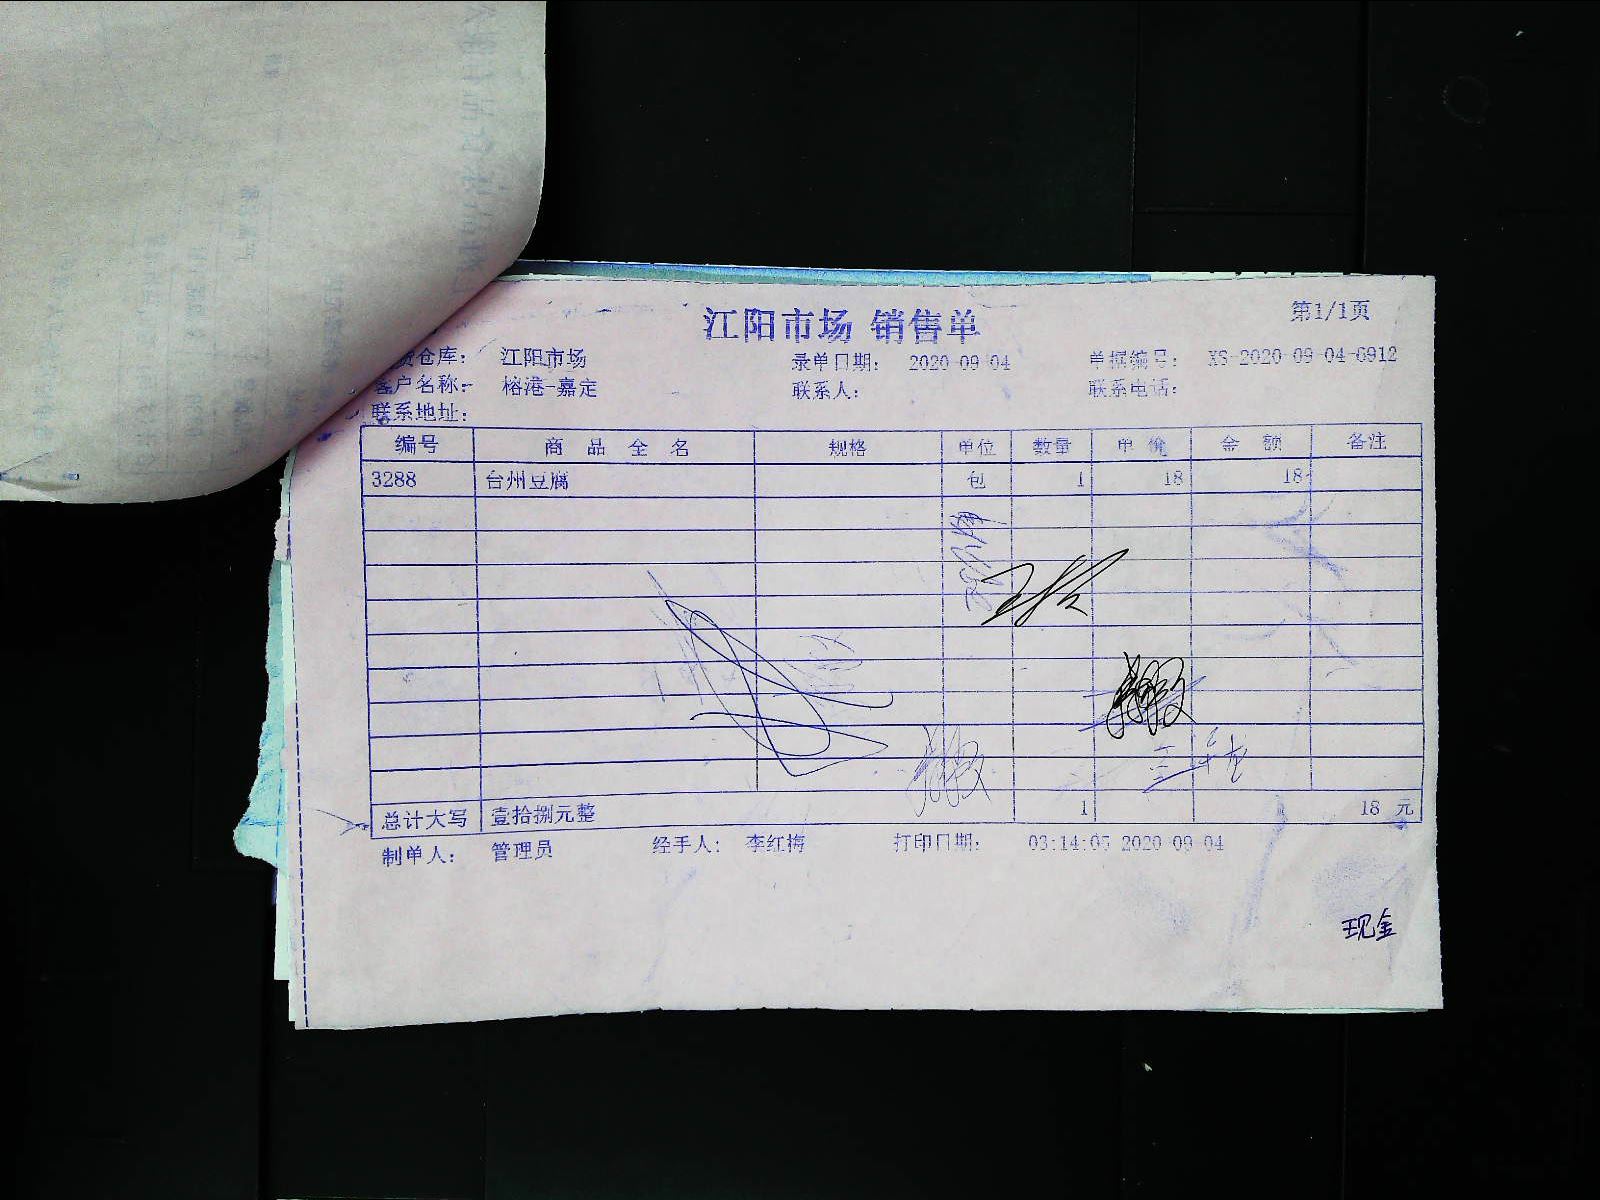 江阳市场 销售单
第1/1页
货仓库： 江阳市场 录单日期： 2020-09-04 单据编号： XS-2020-09-04-0912
客户名称： 榕港-嘉定 联系人： 联系电话：
联系地址：
编号 商品全名 规格 单位 数量 单价 金额 备注
3288 台州豆腐 包 1 18 18
总计大写 壹拾捌元整 1 18 元
制单人： 管理员 经手人： 李红梅 打印日期： 03:14:05 2020-09-04
现金